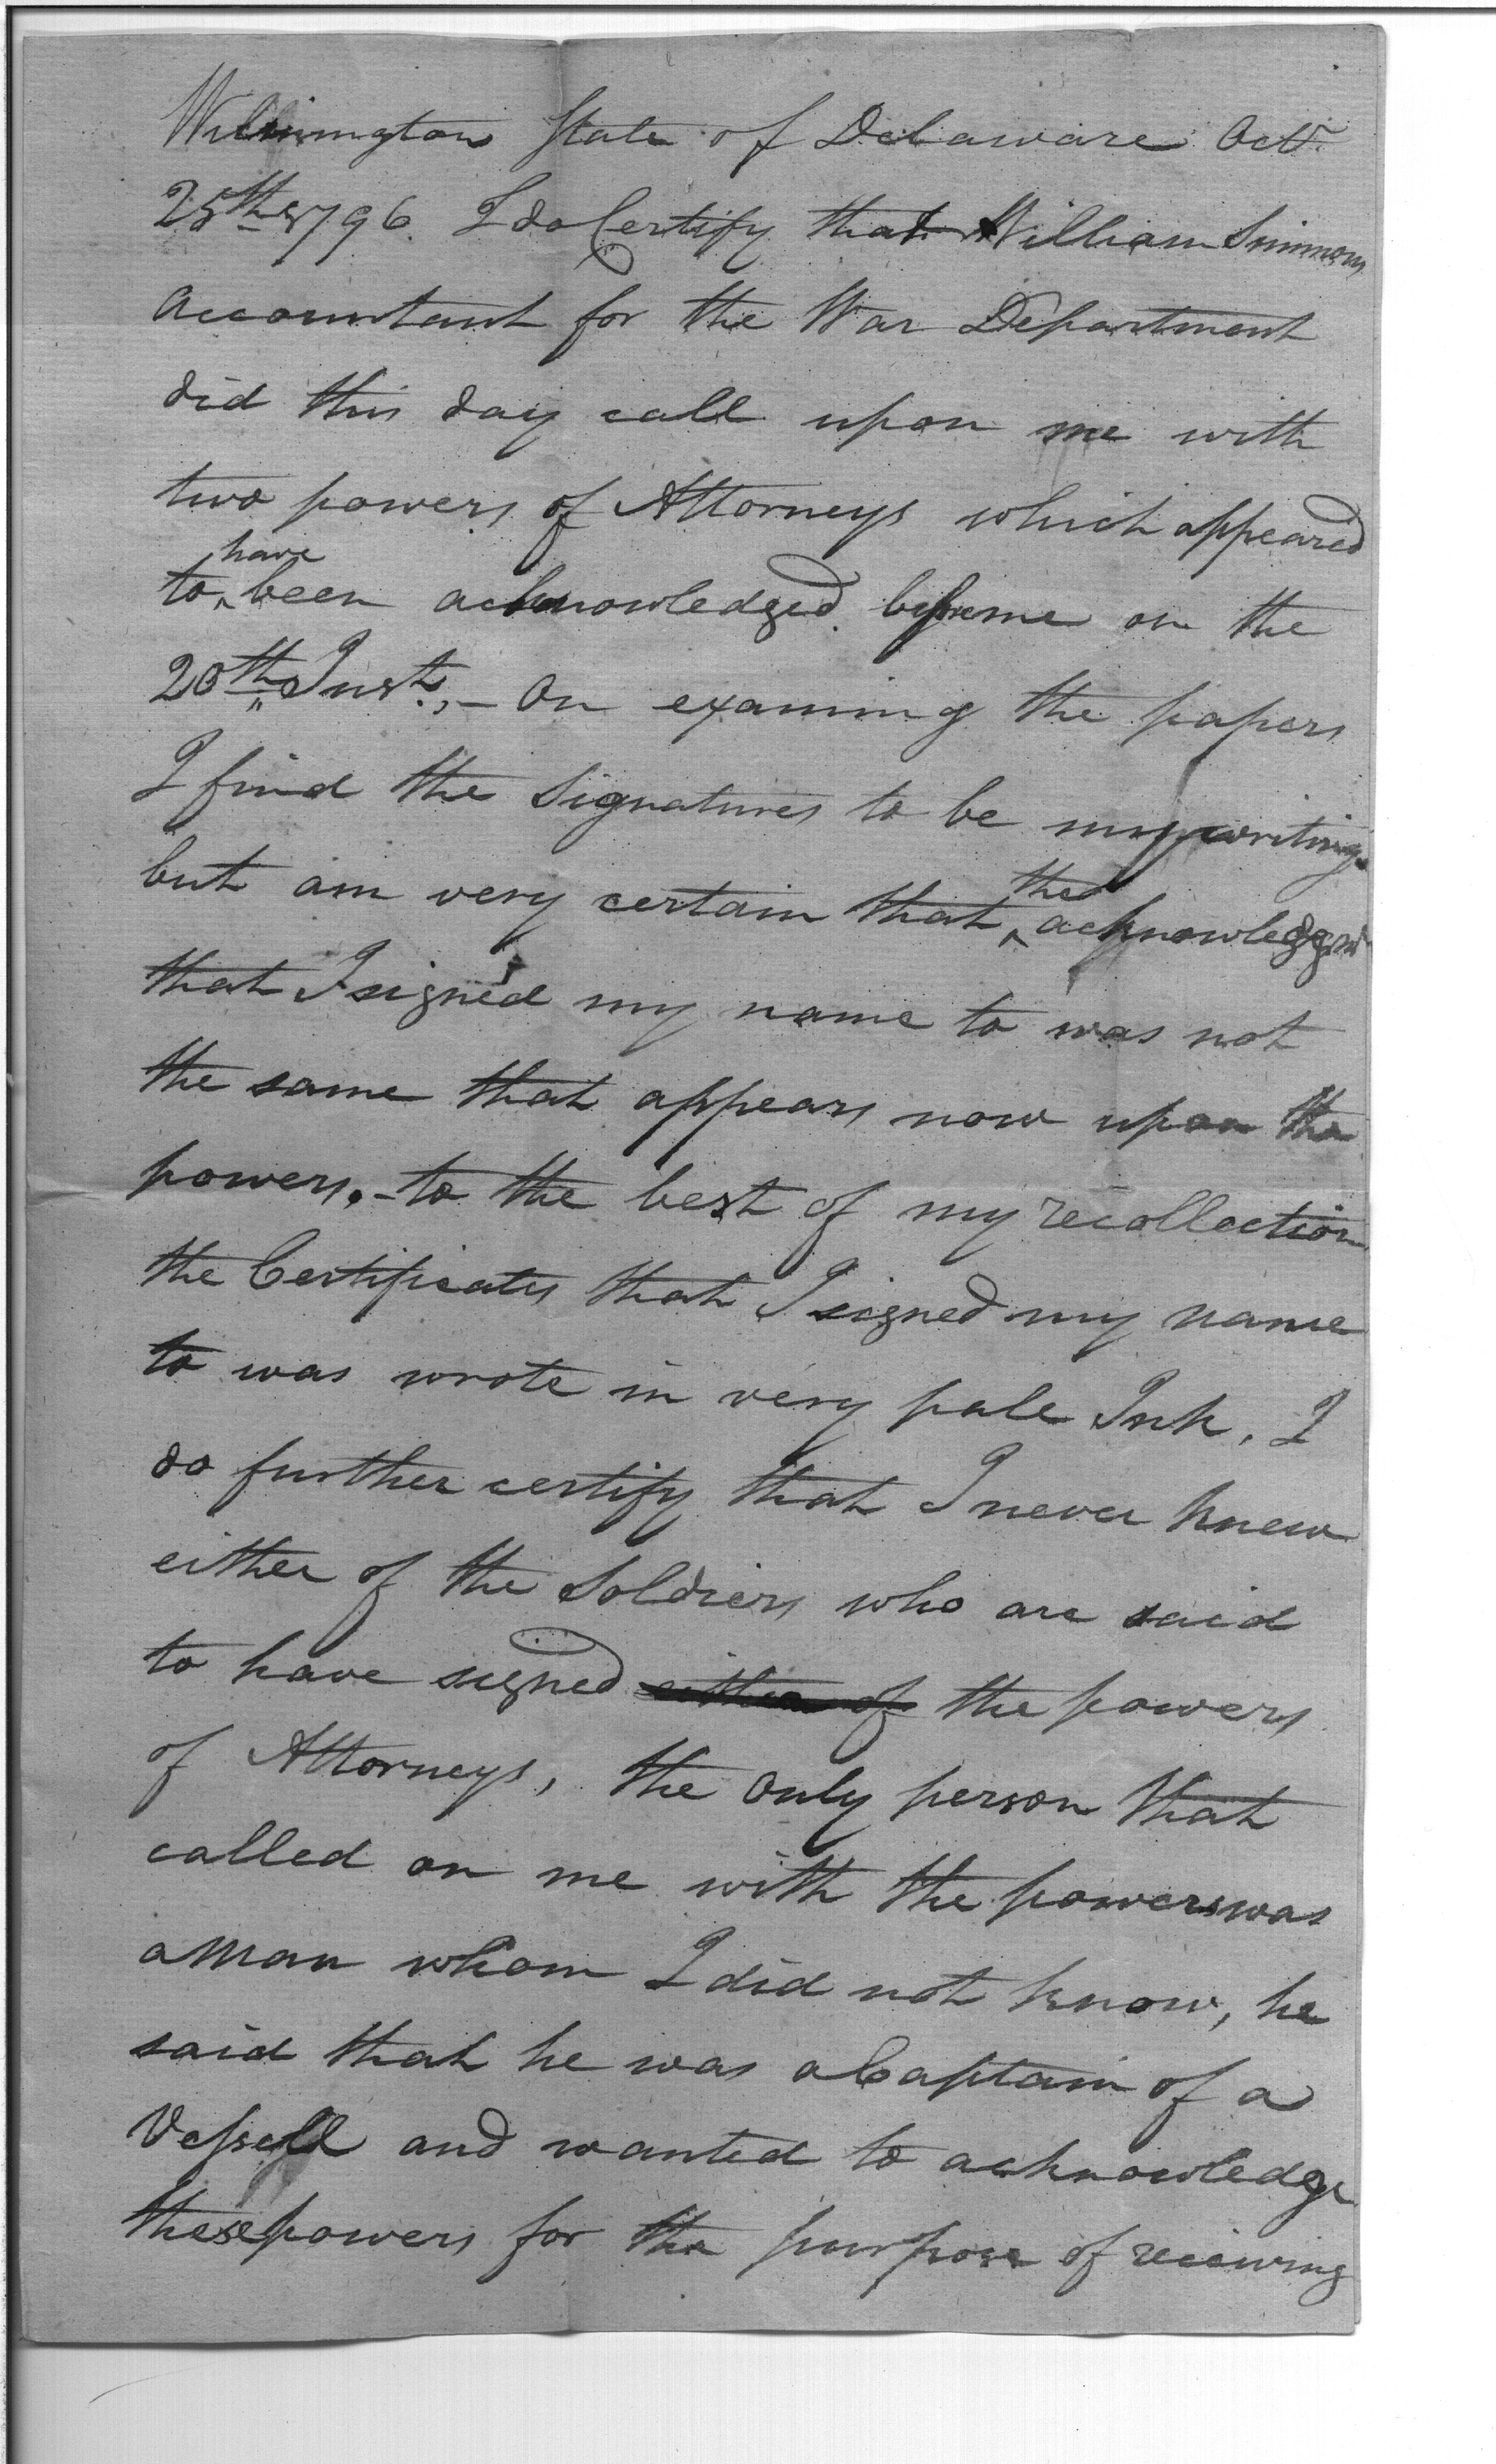 Wilmington State of Delaware Octr.
25th 1796. I do Certify that William Simmons
Accountant for the War Department
did this day call upon me with
two powers of Attorneys which appeared
to have been acknowledged before me on the
20th Inst., - On examining the papers
I find the Signatures to be my writing
but am very certain that the acknowledgmt
that I signed my name to was not
the same that appears now upon the
powers. - to the best of my recollection
the Certificates that I signed my name
to was wrote in very pale Ink, I
do further certify that I never knew
either of the Soldiers who are said
to have signed either of the powers
of Attorneys, the Only person that
called on me with the powers was
a Man whom I did not know, he
said that he was a Captain of a
Vessell and wanted to acknowledge
these powers for the purpose of receiving